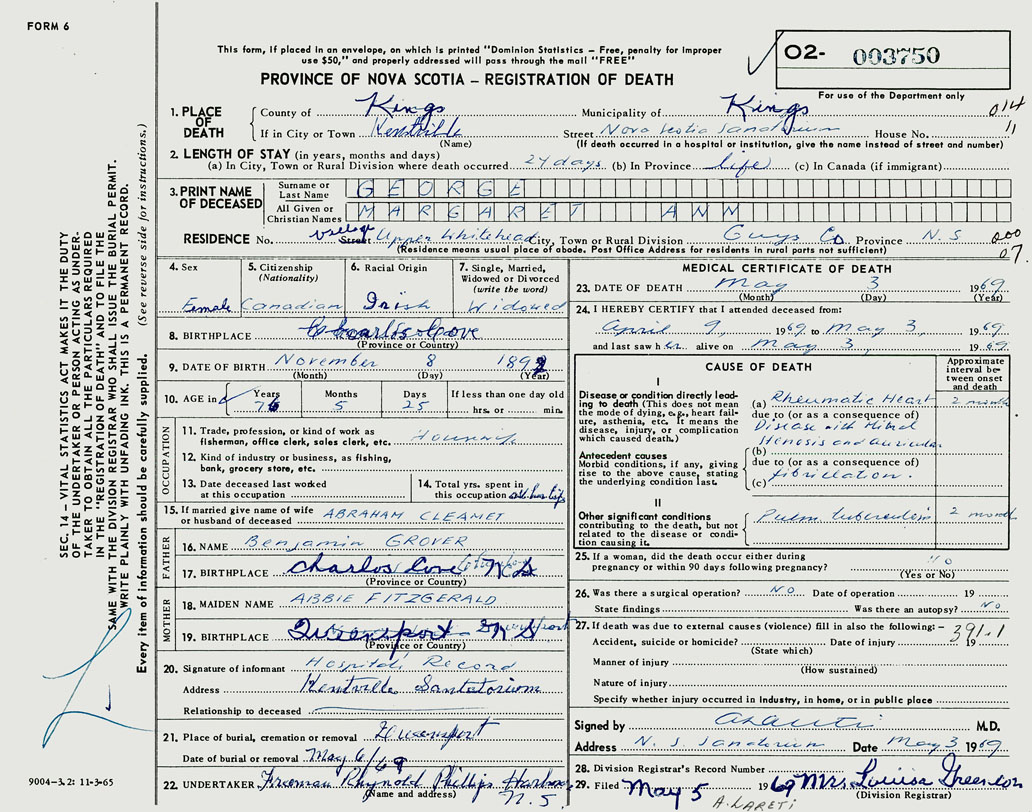 FORM 6
This form, if placed in an envelope, on which is printed "Dominion Statistics – Free, penalty for improper
use $50," and properly addressed will pass through the mail "FREE"
PROVINCE OF NOVA SCOTIA – REGISTRATION OF DEATH
O2- 003750
For use of the Department only
1. PLACE OF DEATH
County of Kings Municipality of Kings 014
If in City or Town Kentville Street Nova Scotia Sanatorium House No. 11
(Name) (If death occurred in a hospital or institution, give the name instead of street and number)
2. LENGTH OF STAY (in years, months and days)
(a) In City, Town or Rural Division where death occurred 24 days (b) In Province life (c) In Canada (if immigrant)
3. PRINT NAME OF DECEASED
Surname or Last Name GEORGE
All Given or Christian Names MARGARET ANN
RESIDENCE No. Street Upper Whitehead City, Town or Rural Division Guys Co. Province N.S 000
(Residence means usual place of abode. Post Office Address for residents in rural parts not sufficient) 07
4. Sex Female
5. Citizenship (Nationality) Canadian
6. Racial Origin Irish
7. Single, Married, Widowed or Divorced (write the word) Widowed
8. BIRTHPLACE Charlos Cove
(Province or Country)
9. DATE OF BIRTH November 8 1892
(Month) (Day) (Year)
10. AGE in Years 76 Months 5 Days 25 If less than one day old
hrs. or min.
OCCUPATION
11. Trade, profession, or kind of work as
fisherman, office clerk, sales clerk, etc. Housewife
12. Kind of industry or business, as fishing,
bank, grocery store, etc.
13. Date deceased last worked
at this occupation
14. Total yrs. spent in
this occupation all her life
15. If married give name of wife
or husband of deceased ABRAHAM CLEAMET
FATHER
16. NAME Benjamin GROVER
17. BIRTHPLACE Charlos Cove N S
(Province or Country)
MOTHER
18. MAIDEN NAME ABBIE FITZGERALD
19. BIRTHPLACE Queensport N S
(Province or Country)
20. Signature of informant Hospital Record
Address Kentville Sanatorium
Relationship to deceased
21. Place of burial, cremation or removal Queensport
Date of burial or removal May 6/69
22. UNDERTAKER Freeman Reynold Phillip Harbour
(Name and address) N.S.
MEDICAL CERTIFICATE OF DEATH
23. DATE OF DEATH May 3 1969
(Month) (Day) (Year)
24. I HEREBY CERTIFY that I attended deceased from:
April 9, 1969 to May 3, 1969
and last saw her alive on May 3, 1969
CAUSE OF DEATH
Approximate interval between onset and death
I
Disease or condition directly leading to death (This does not mean the mode of dying, e.g., heart failure, asthenia, etc. It means the disease, injury, or complication which caused death.)
(a) Rheumatic Heart 2 month
due to (or as a consequence of)
Disease with Mitral
Stenosis and auricular
Antecedent causes
Morbid conditions, if any, giving rise to the above cause, stating the underlying condition last.
(b)
due to (or as a consequence of)
(c) fibrillation.
II
Other significant conditions
contributing to the death, but not related to the disease or condition causing it.
Pulm tuberculosis 2 month
25. If a woman, did the death occur either during
pregnancy or within 90 days following pregnancy? no
(Yes or No)
26. Was there a surgical operation? NO Date of operation 19
State findings Was there an autopsy? No
27. If death was due to external causes (violence) fill in also the following: – 391.1
Accident, suicide or homicide? Date of injury 19
(State which)
Manner of injury
(How sustained)
Nature of injury
Specify whether injury occurred in industry, in home, or in public place
Signed by M.D.
Address N. S. Sanatorium Date May 3 1969
28. Division Registrar's Record Number
29. Filed May 5 1969 Mrs Louisa
(Division Registrar)
A. LARETI
SEC. 14 – VITAL STATISTICS ACT MAKES IT THE DUTY
OF THE UNDERTAKER OR PERSON ACTING AS UNDER-
TAKER TO OBTAIN ALL THE PARTICULARS REQUIRED
IN THE "REGISTRATION OF DEATH" AND TO FILE THE
SAME WITH THE DIVISION REGISTRAR WHO SHALL ISSUE THE BURIAL PERMIT.
WRITE PLAINLY WITH UNFADING INK. THIS IS A PERMANENT RECORD.
Every item of information should be carefully supplied. (See reverse side for instructions.)
9004-3.2: 11-3-65